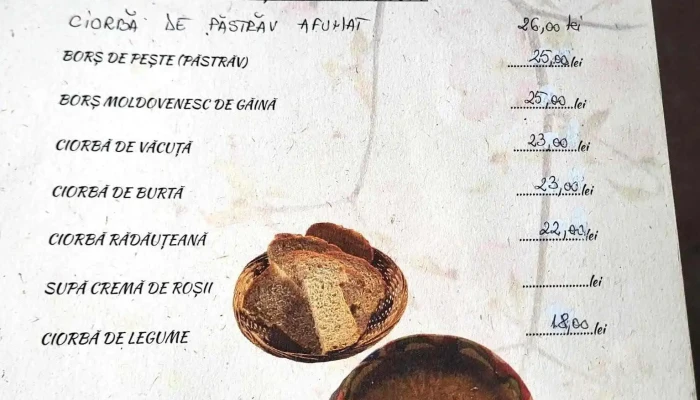 CIORBĂ DE PĂSTRĂV AFUMAT 26,00 lei
BORȘ DE PEȘTE (PĂSTRĂV) 25,00 lei
BORȘ MOLDOVENESC DE GĂINĂ 25,00 lei
CIORBĂ DE VĂCUȚĂ 23,00 lei
CIORBĂ DE BURTĂ 23,00 lei
CIORBĂ RĂDĂUȚEANĂ 22,00 lei
SUPĂ CREMĂ DE ROȘII ................lei
CIORBĂ DE LEGUME 18,00 lei